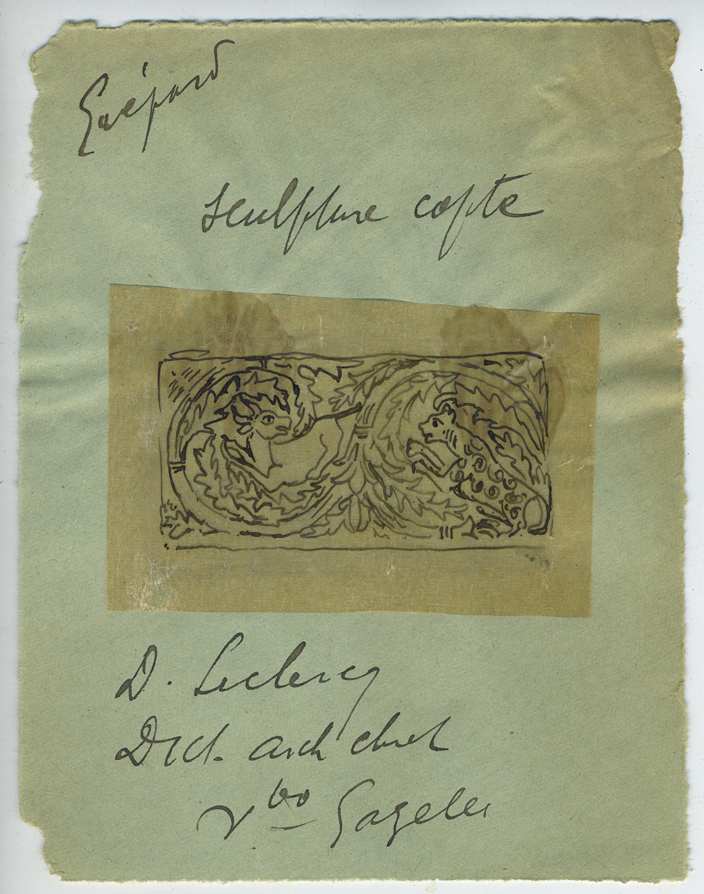 Guépard
sculpture copte
D. Leclercq
Dict. arch chret
Vbo Gazelle